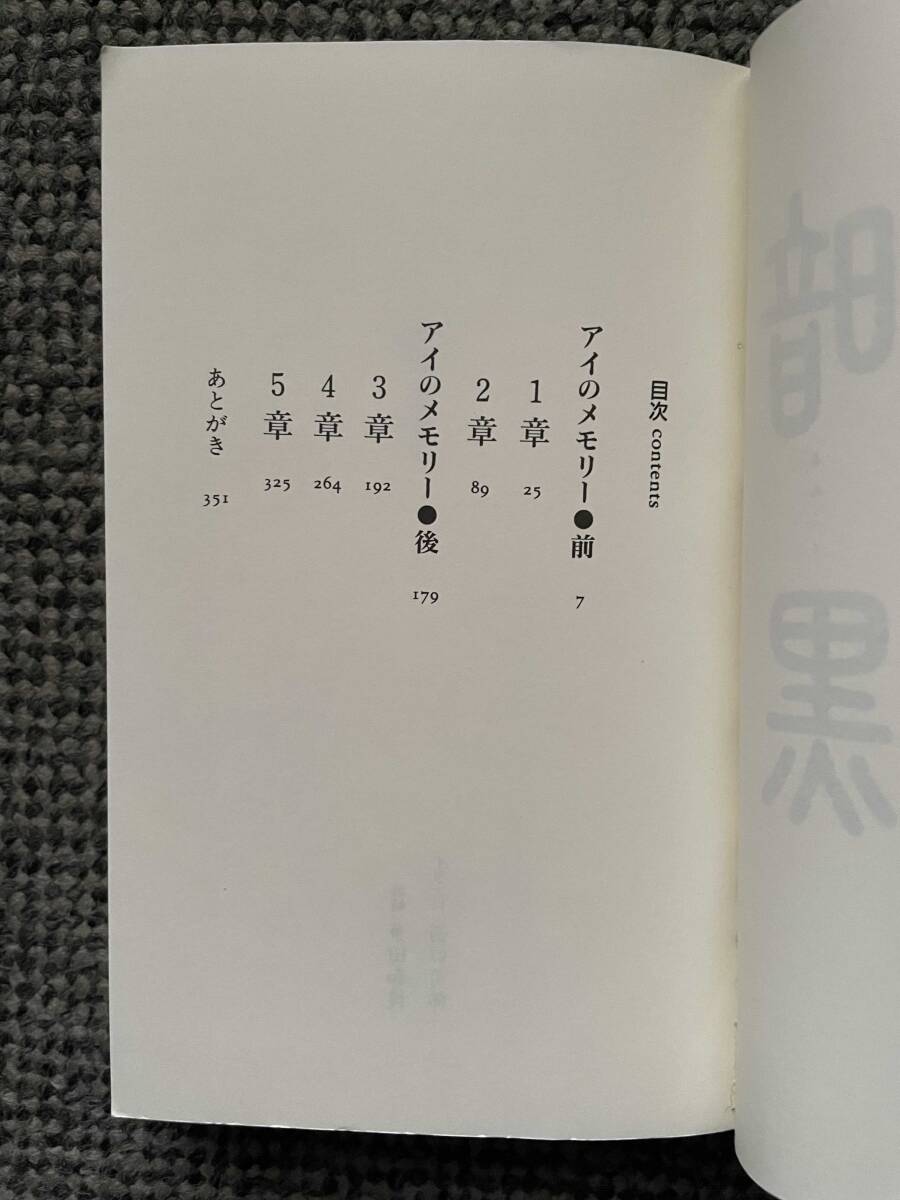 目次 contents
アイのメモリー●前 7
1章 25
2章 89
アイのメモリー●後 179
3章 192
4章 264
5章 325
あとがき 351
暗黒